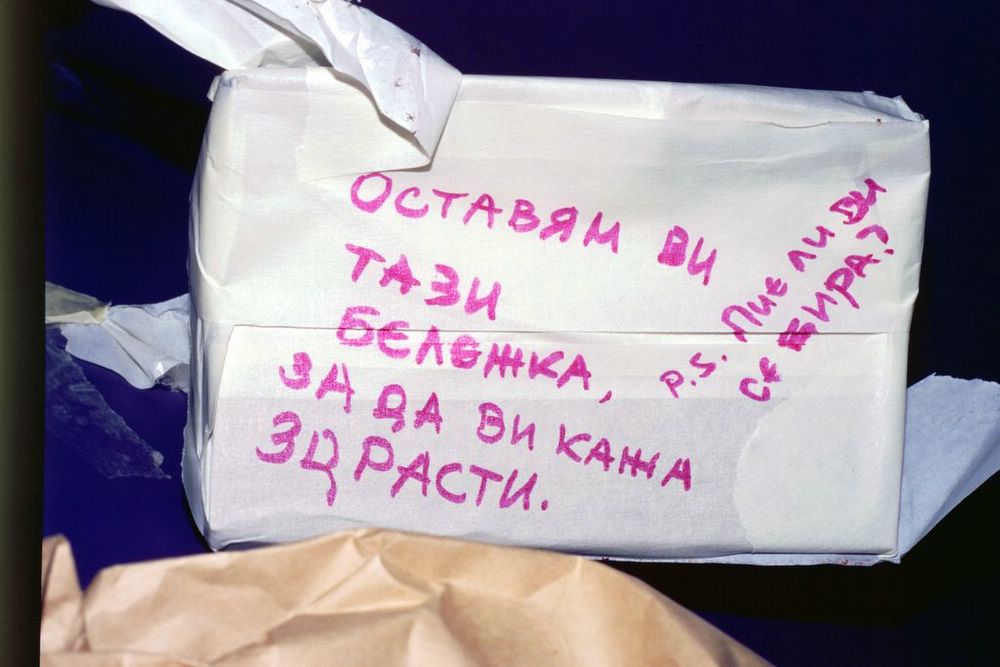 ОСТАВЯМ ВИ
ТАЗИ
БЕЛЕЖКА,
ЗА ДА ВИ КАЖА
ЗДРАСТИ.
P.S. ПИЕ ЛИ ВИ
СЕ БИРА?